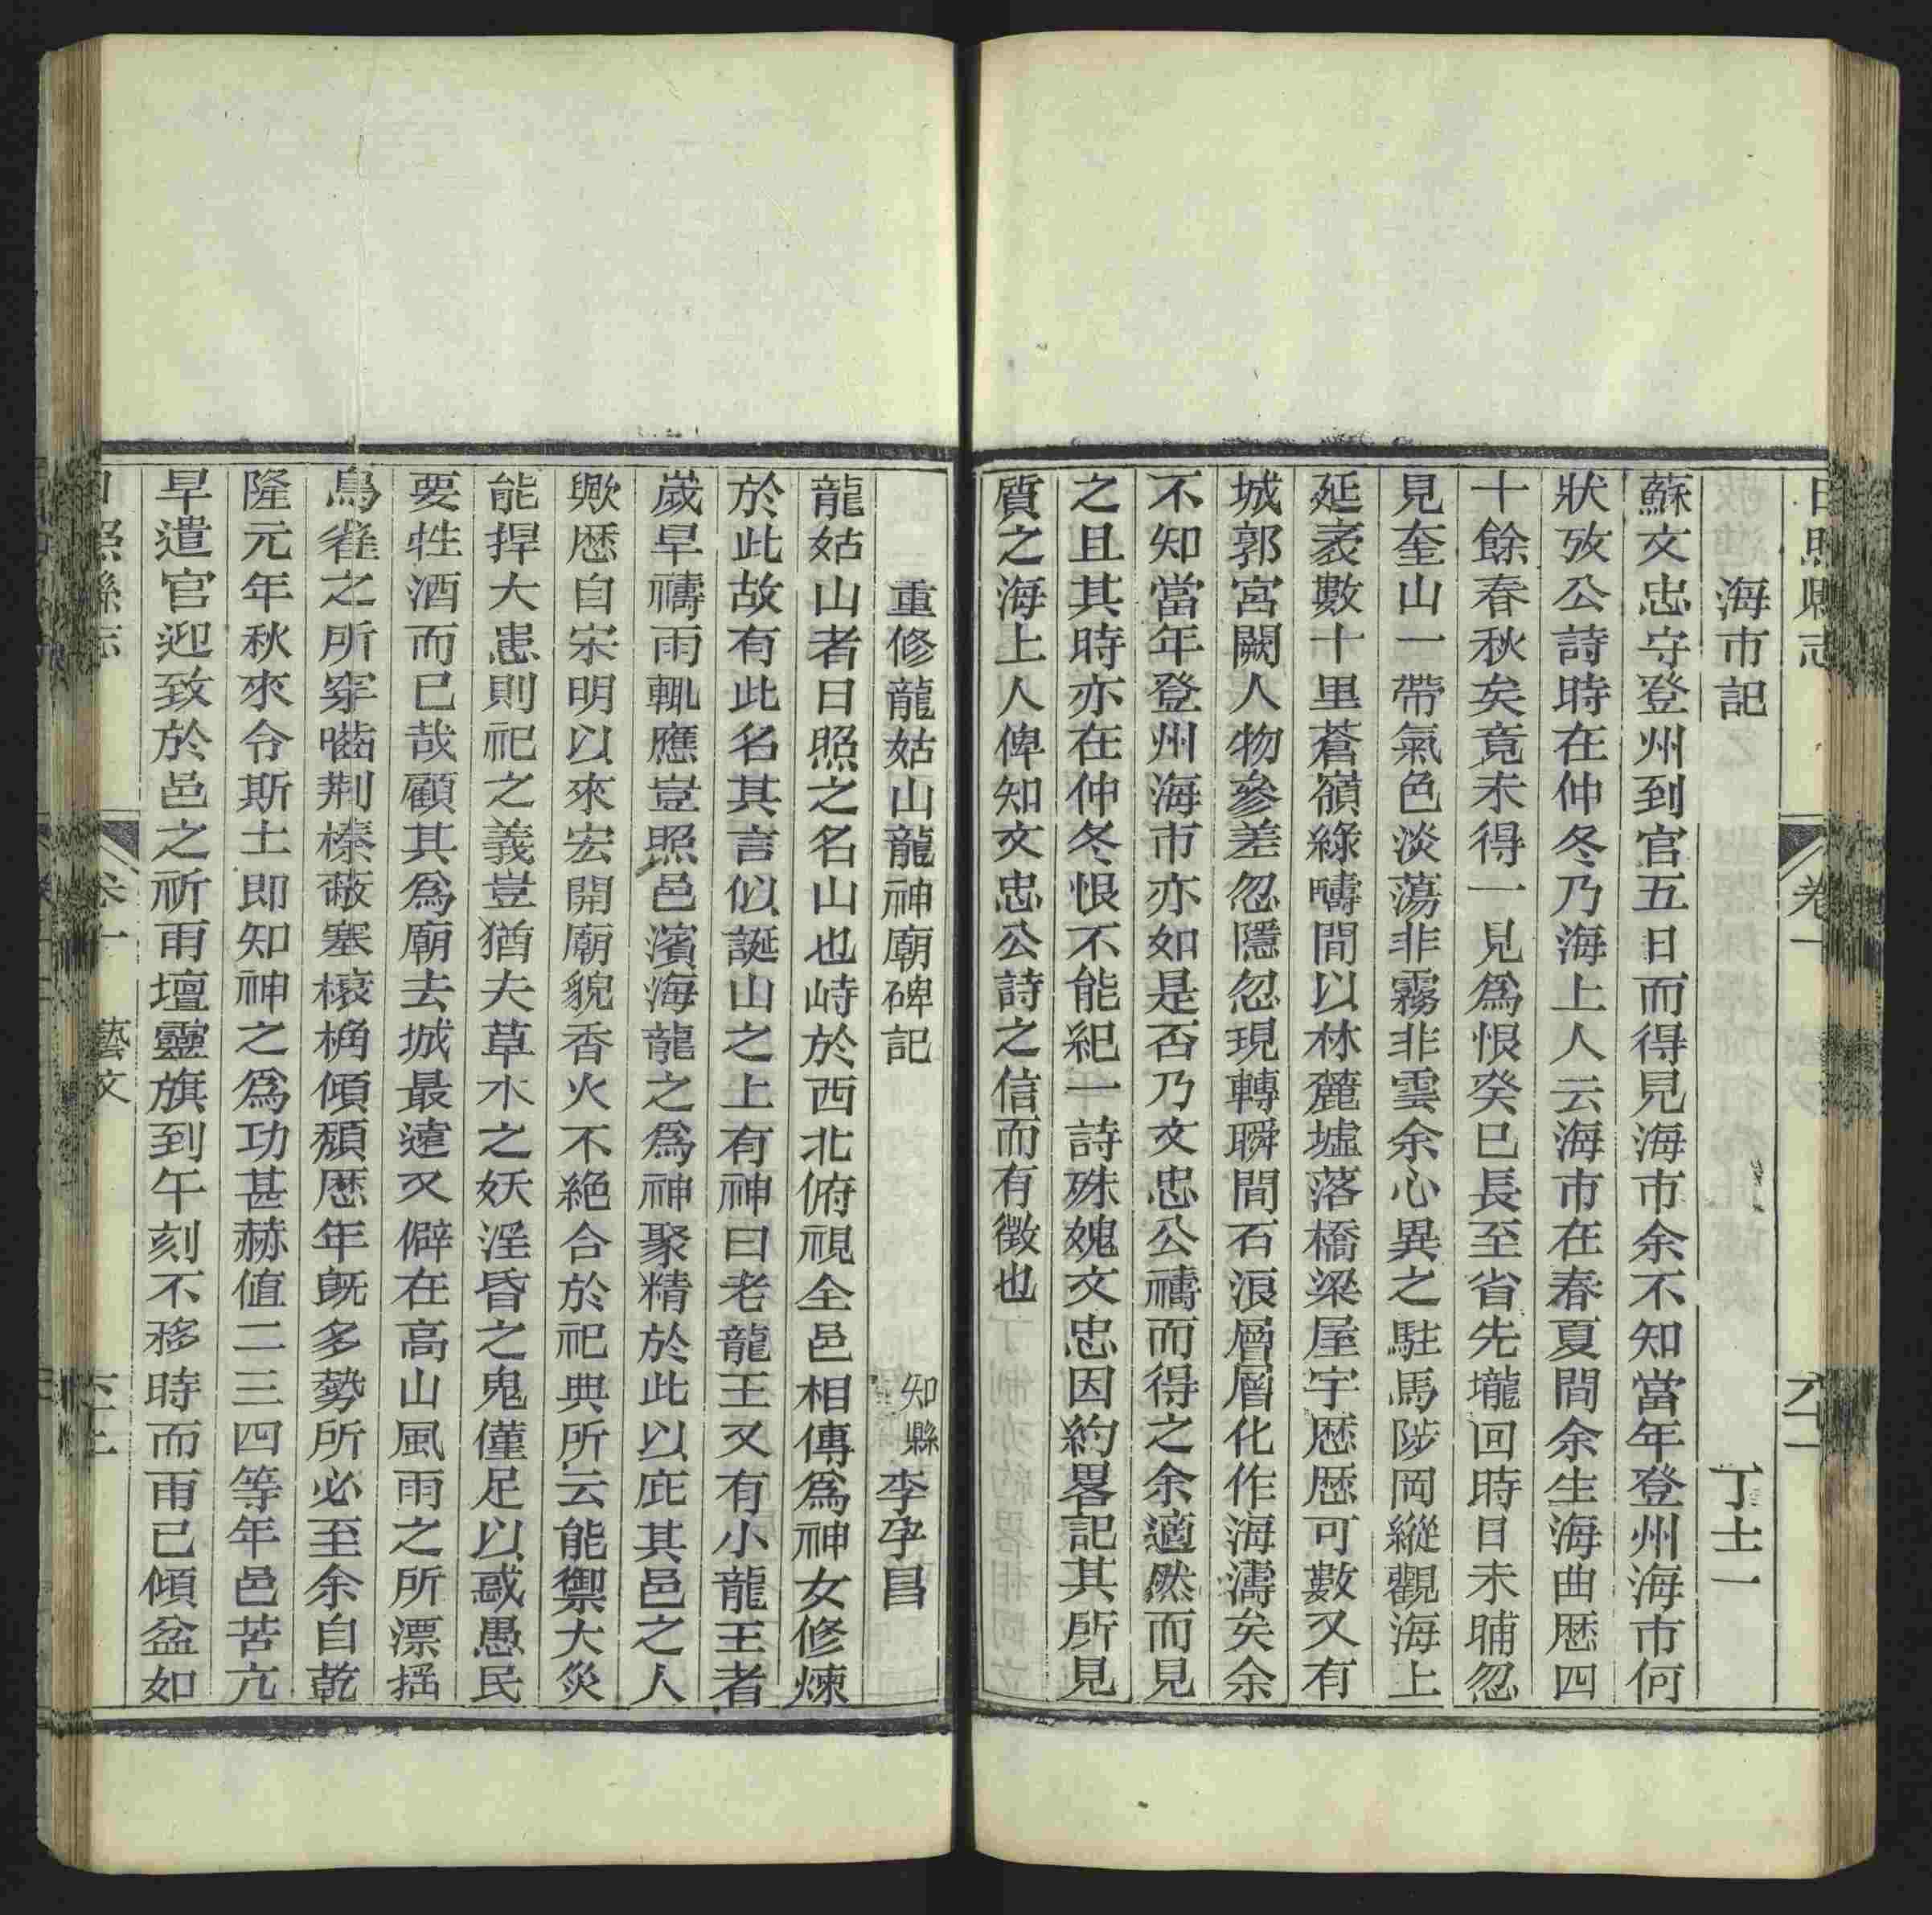 日照縣志　卷十　六十一
海市記　丁士一
蘇文忠守登州到官五日而得見海市余不知當年登州海市何
狀攷公詩時在仲冬乃海上人云海市在春夏間余生海曲歷四
十餘春秋矣竟未得一見爲恨癸巳長至省先壠回時日未晡忽
見奎山一帶氣色淡蕩非霧非雲余心異之駐馬陟岡縱觀海上
延袤數十里蒼嶺綠疇間以林麓墟落橋梁屋宇歷歷可數又有
城郭宮闕人物參差忽隱忽現轉瞬間石浪層層化作海濤矣余
不知當年登州海市亦如是否乃文忠公禱而得之余適然而見
之且其時亦在仲冬恨不能紀一詩殊媿文忠因約畧記其所見
質之海上人俾知文忠公詩之信而有徵也
重修龍姑山龍神廟碑記　知縣李孕昌
龍姑山者日照之名山也峙於西北俯視全邑相傳爲神女修煉
於此故有此名其言似誕山之上有神曰老龍王又有小龍王者
歲旱禱雨輒應豈照邑濱海龍之爲神聚精於此以庇其邑之人
歟歷自宋明以來宏開廟貌香火不絕合於祀典所云能禦大災
能捍大患則祀之義豈猶夫草木之妖淫昏之鬼僅足以惑愚民
要牲酒而已哉顧其爲廟去城最遠又僻在高山風雨之所漂搖
鳥雀之所穿嚙荆榛蔽塞榱桷傾頹歷年旣多勢所必至余自乾
隆元年秋來令斯土即知神之爲功甚赫值二三四等年邑苦亢
旱遣官迎致於邑之祈雨壇靈旗到午刻不移時而雨已傾盆如
日照縣志　卷十　藝文